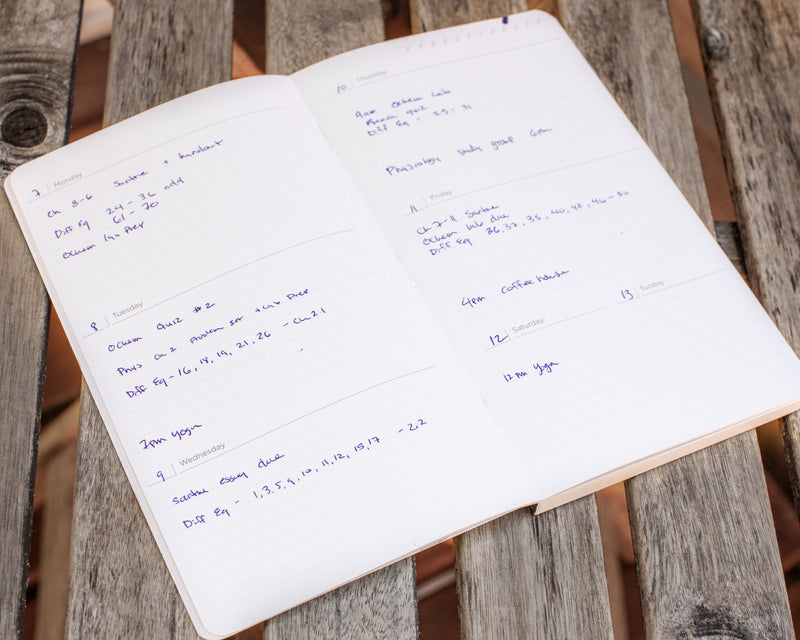 7 Monday
Ch 3-6 Sartre + handout
Diff Eq 24 - 36 odd
61 - 70
Ochem lab Prep
8 Tuesday
Ochem Quiz #2
Phys ch 2 Problem set + Lab Prep
Diff Eq - 16, 18, 19, 21, 26 - Ch 2.1
7pm yoga
9 Wednesday
Sartre essay due
Diff Eq - 1, 3, 5, 9, 10, 11, 12, 15, 17 - 2.2
10 Thursday
Ochem Lab
quiz
Diff Eq - 25 - 31
Physiology study group 6pm
11 Friday
Ch 7-11 Sartre
Ochem lab due
Diff Eq 36, 37, 38, 40, 42, 46 - 50
4pm coffee house
12 Saturday
12 pm yoga
13 Sunday